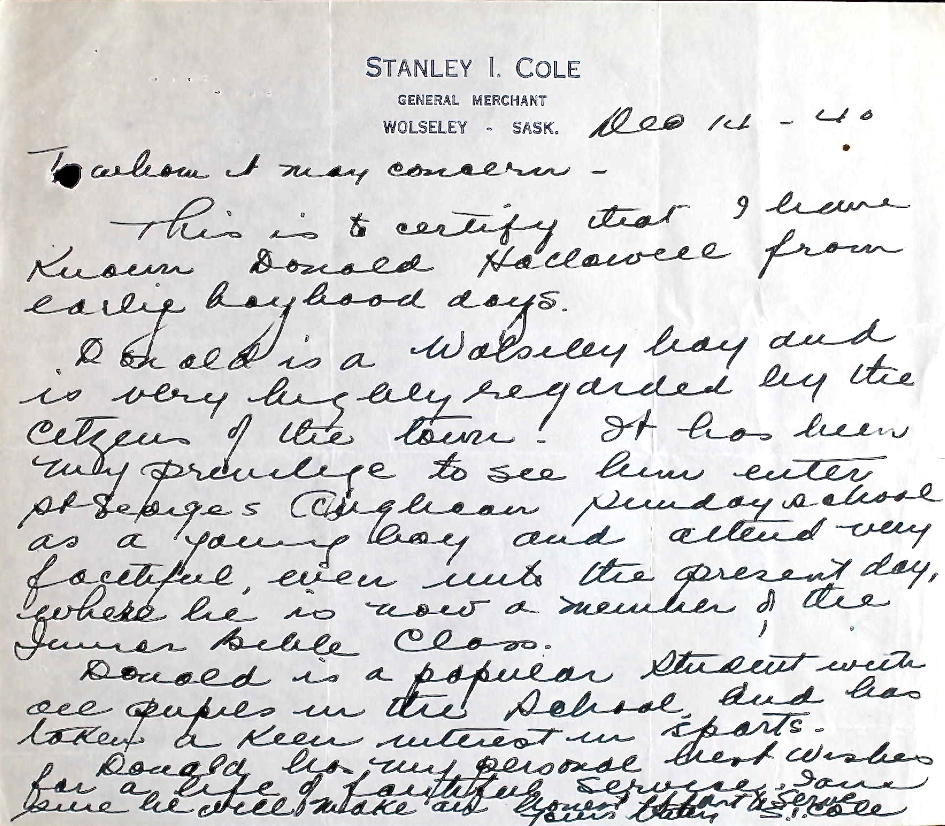 STANLEY I. COLE
GENERAL MERCHANT
WOLSELEY - SASK.
Dec 14 - 40
To whom it may concern -
This is to certify that I have
Known Donald Hallowell from
early boyhood days.
Donald is a Wolseley boy and
is very highly regarded by the
citizens of the town. It has been
my privilege to see him enter
St Georges Anglican Sunday school
as a young boy and attend very
faithful, even unto the present day,
where he is now a member of the
Junior Bible Class.
Donald is a popular student with
all pupils in the School, and has
taken a keen interest in sports.
Donald has my personal best wishes
for a life of faithful Service, I am
sure he will make an honest
Yours S.I. Cole